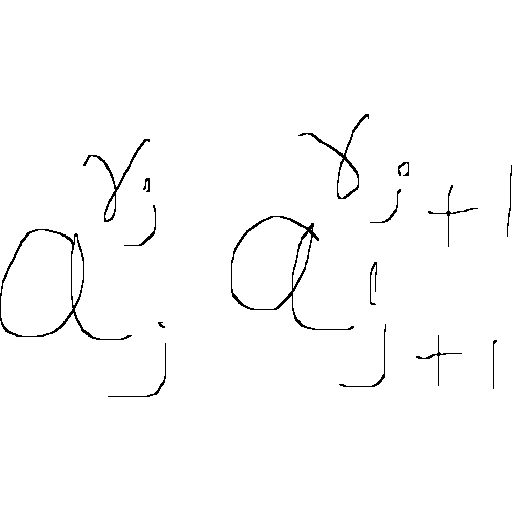 a_j^{γ_j} a_{j+1}^{γ_{j+1}}